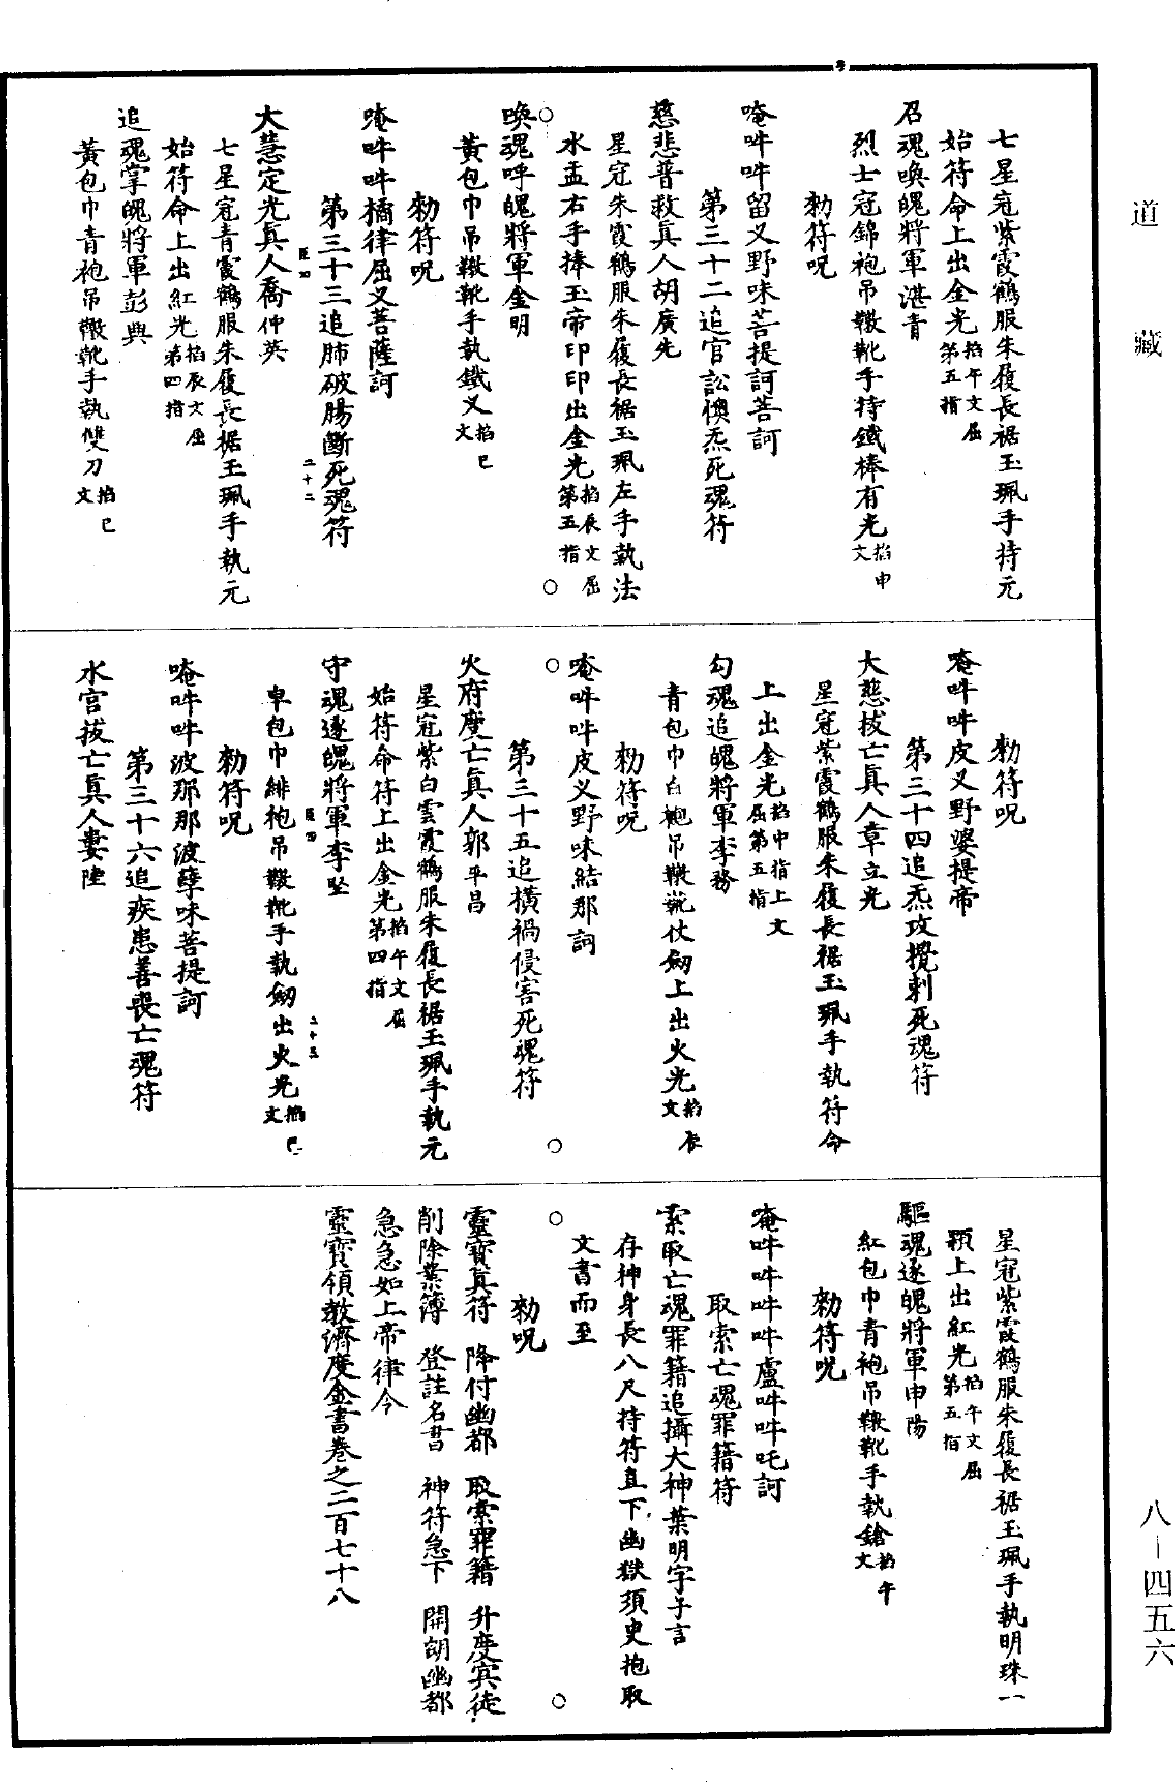 道藏
七星冠紫霞鶴服朱履長裾玉珮手持元
始符命上出金光掐午文屈第五指
召魂喚魄將軍湛青
烈士冠錦袍吊𩎟靴手持鐵棒有光掐申文
勑符呪
唵吽吽留叉野味菩提訶菩訶
第三十二追官訟懊炁死魂符
慈悲普救真人胡廣先
星冠朱霞鶴服朱履長裾玉珮左手執法
水盂右手捧玉帝印印出金光掐辰文屈第五指
喚魂呼魄將軍金明
黃包巾吊𩎟靴手執鐵叉掐巳文
勑符呪
唵吽吽橘律屈叉菩薩訶
第三十三追肺破腸斷死魂符
匡四 二十二
大慧定光真人喬仲英
七星冠青霞鶴服朱履長裾玉珮手執元
始符命上出紅光掐辰文屈第四指
追魂掌魄將軍彭典
黃包巾青袍吊𩎟靴手執雙刀掐巳文
勑符呪
唵吽吽皮叉野婆提帝
第三十四追炁攻攪刺死魂符
大慈拔亡真人章立光
星冠紫霞鶴服朱履長裾玉珮手執符命
上出金光掐中指上文屈第五指
勾魂追魄將軍李務
青包巾白袍吊𩎟靴仗劒上出火光掐辰文
勑符呪
唵吽吽皮义野味結那訶
第三十五追橫禍侵害死魂符
火府度亡真人郭平昌
星冠紫白雲霞鶴服朱履長裾玉珮手執元
始符命符上出金光掐午文屈第四指
守魂逐魄將軍李堅
匡四 二十三
皁包巾緋袍吊𩎟靴手執劒出火光掐巳文
勑符呪
唵吽吽波那那波孽味菩提訶
第三十六追疾患善喪亡魂符
水宮拔亡真人婁陸
星冠紫霞鶴服朱履長裾玉珮手執明珠一
顆上出紅光掐午文屈第五指
驅魂逐魄將軍申陽
紅包巾青袍吊𩎟靴手執鎗掐午文
勑符呪
唵吽吽吽吽盧吽吽吒訶
取索亡魂罪籍符
索取亡魂罪籍追攝大神葉明字子言
存神身長八尺持符直下幽獄須臾抱取
文書而至
勑呪
靈寶真符 降付幽都 取索罪籍 升度賓徒
削除業簿 登註名書 神符急下 開胡幽都
急急如上帝律令
靈寶領教濟度金書卷之二百七十八
八－四五六